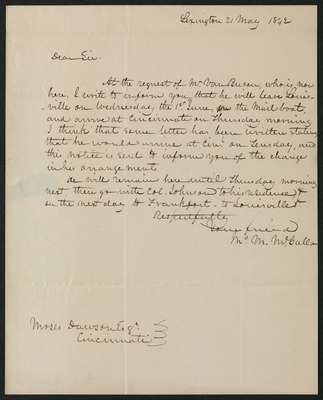 Lexington 21 May 1842
Dear Sir.
At the request of Mr Van Buren, who is now
here, I write to inform you that he will leave Louis-
ville on Wednesday, the 1st June, on the Mail boat,
and arrive at Cincinnati on Thursday morning
I think that some letter has been written stating
that he would arrive at Cin: on Tuesday, and
this notice is sent to inform you of the change
in his arrangements.
He will remain here until Thursday morning
next then go with Col. Johnson to his residence &
on the next day to Frankfort - to Louisville &
Respectfully
Your friend
M. M. McCalla
Moses Dawson Esqr.
Cincinnati